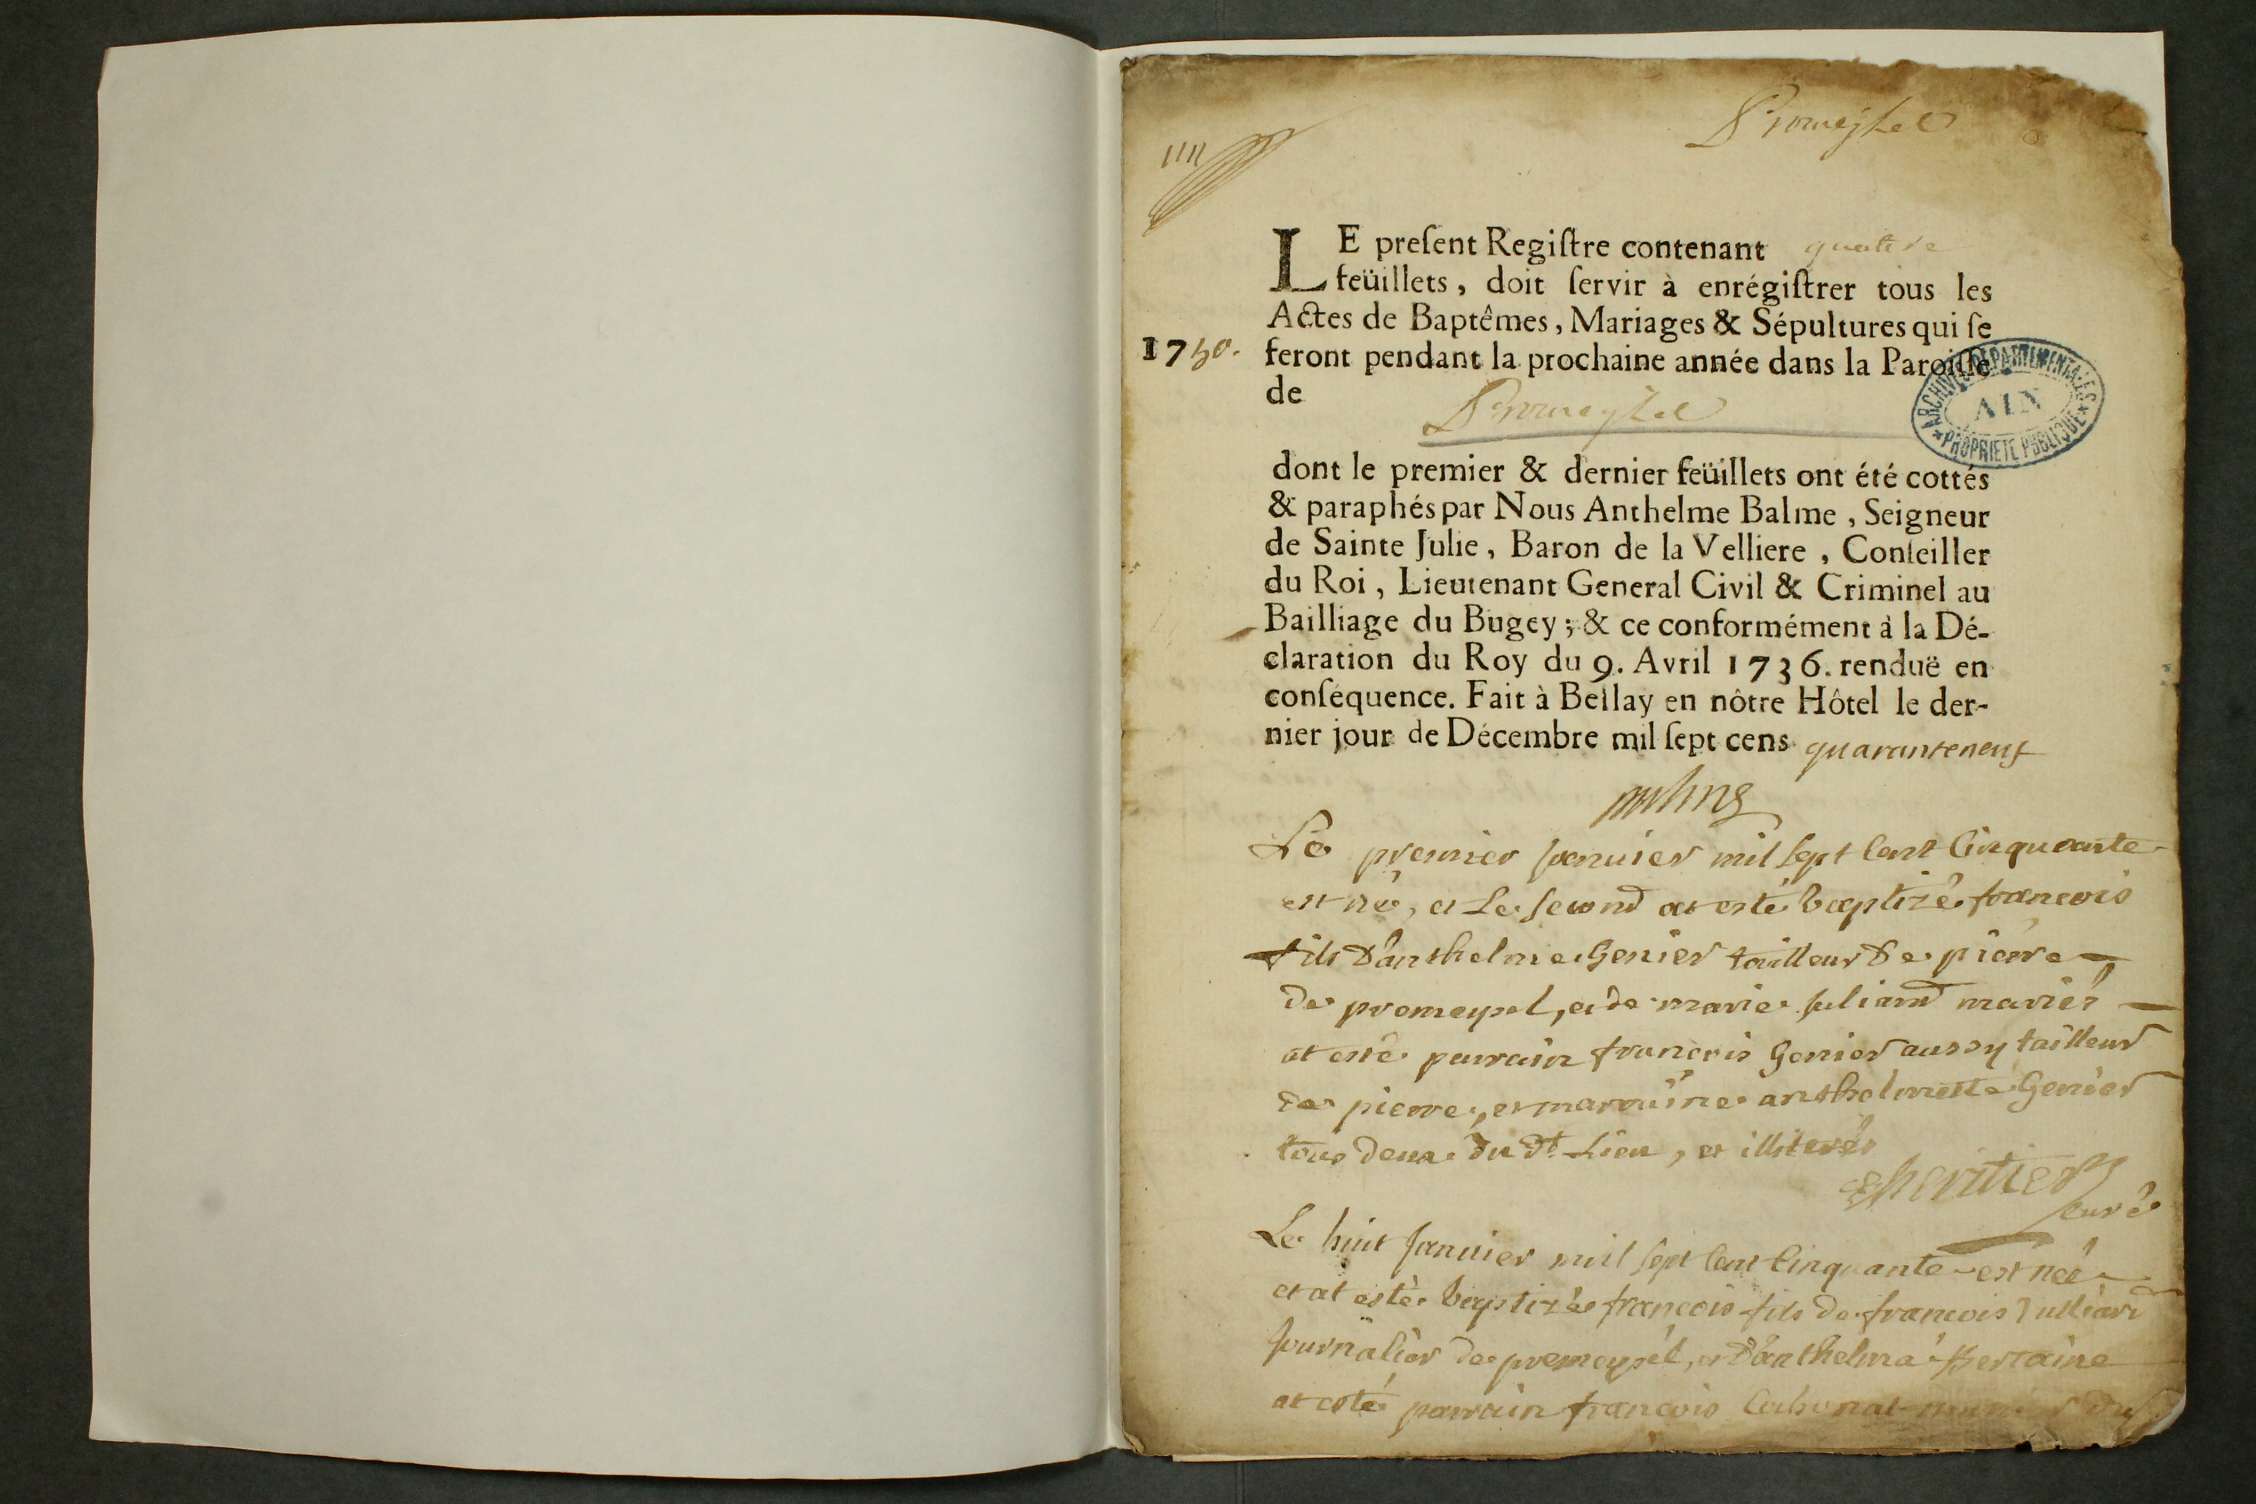 Promeyzel
LE preſent Regiſtre contenant quatre
feüillets, doit ſervir à enrégiſtrer tous les
Actes de Baptêmes, Mariages & Sépultures qui ſe
1750. feront pendant la prochaine année dans la Paroiſſe
de Promeyzel
ARCHIVES DEPARTEMENTALES
AIN
PROPRIETE PUBLIQUE
dont le premier & dernier feüillets ont été cottés
& paraphés par Nous Anthelme Balme, Seigneur
de Sainte Julie, Baron de la Velliere, Conſeiller
du Roi, Lieutenant General Civil & Criminel au
Bailliage du Bugey; & ce conformément à la Dé-
claration du Roy du 9. Avril 1736. renduë en
conſéquence. Fait à Bellay en nôtre Hôtel le der-
nier jour de Décembre mil ſept cens quaranteneuf
Le premier janvier mil sept cent cinquante
est né, et le second at esté baptizé francois
fils d'anthelme Genier tailleur de pierre
de promeyzel, et de marie juliand mariés
at esté parrain francois Genier aussy tailleur
de pierre, et marraine anthelmette Genier
tous deux du dt Lieu, et illiterés
Lheritier
curé
Le huit janvier mil sept cent cinquante est né
et at esté baptizé francois fils de francois Julliard
journalier de promeyzel, et d'anthelma
at esté parrain francois